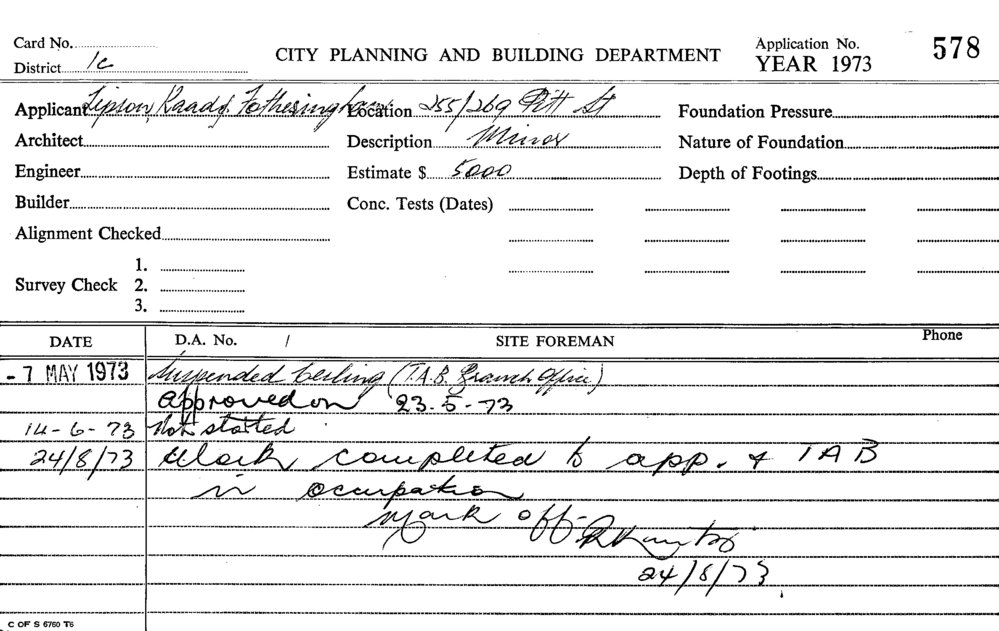 Card No.
CITY PLANNING AND BUILDING DEPARTMENT
Application No. 578
District 1c
YEAR 1973
Applicant Lipson, Kaad & Fotheringham Location 255/269 Pitt St Foundation Pressure
Architect Description Minor Nature of Foundation
Engineer Estimate $ 5000 Depth of Footings
Builder Conc. Tests (Dates)
Alignment Checked
1.
Survey Check 2.
3.
DATE D.A. No. / SITE FOREMAN Phone
- 7 MAY 1973 Suspended Ceiling (T.A.B. Branch Office)
approved on 23-5-73
14-6-73 Not started
24/8/73 Work completed to app. & TAB
in occupation
Mark off
24/8/73
C OF S 6760 T6